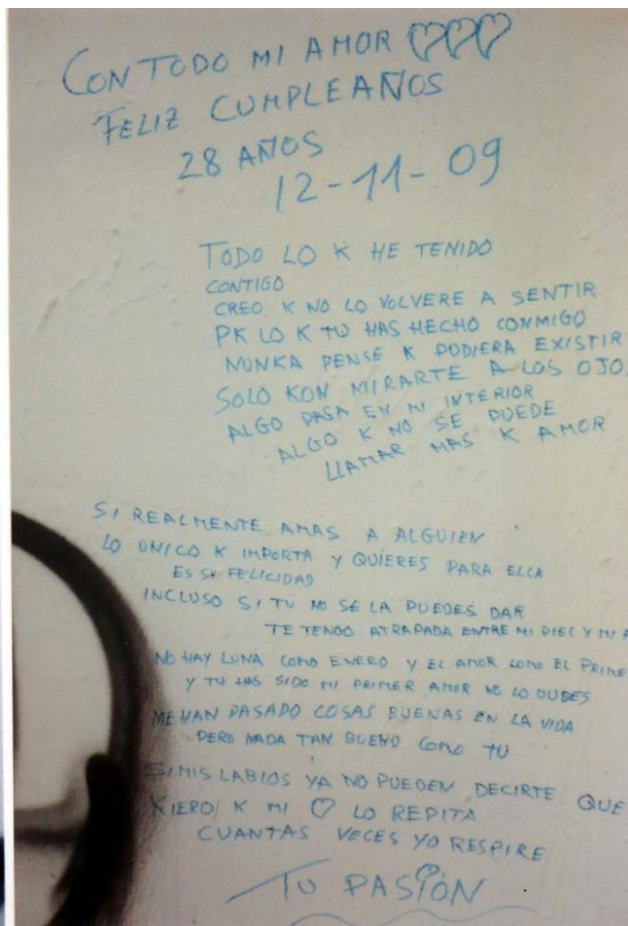 CON TODO MI AMOR
FELIZ CUMPLEAÑOS
28 AÑOS
12-11-09
TODO LO K HE TENIDO
CONTIGO
CREO K NO LO VOLVERE A SENTIR
PK LO K TU HAS HECHO CONMIGO
NUNKA PENSE K PUDIERA EXISTIR
SOLO KON MIRARTE A LOS OJO
ALGO PASA EN MI INTERIOR
ALGO K NO SE PUEDE
LLAMAR MAS K AMOR
SI REALMENTE AMAS A ALGUIEN
LO UNICO K IMPORTA Y QUIERES PARA ELLA
ES SU FELICIDAD
INCLUSO SI TU NO SE LA PUEDES DAR
TE TENGO ATRAPADA ENTRE MI PIEL Y MI
NO HAY LUNA COMO ENERO Y EL AMOR COMO EL PRIME
Y TU HAS SIDO MI PRIMER AMOR NO LO DUDES
ME HAN PASADO COSAS BUENAS EN LA VIDA
PERO NADA TAN BUENO COMO TU
SI MIS LABIOS YA NO PUEDEN DECIRTE QUE
KIERO K MI ♡ LO REPITA
CUANTAS VECES YO RESPIRE
TU PASION